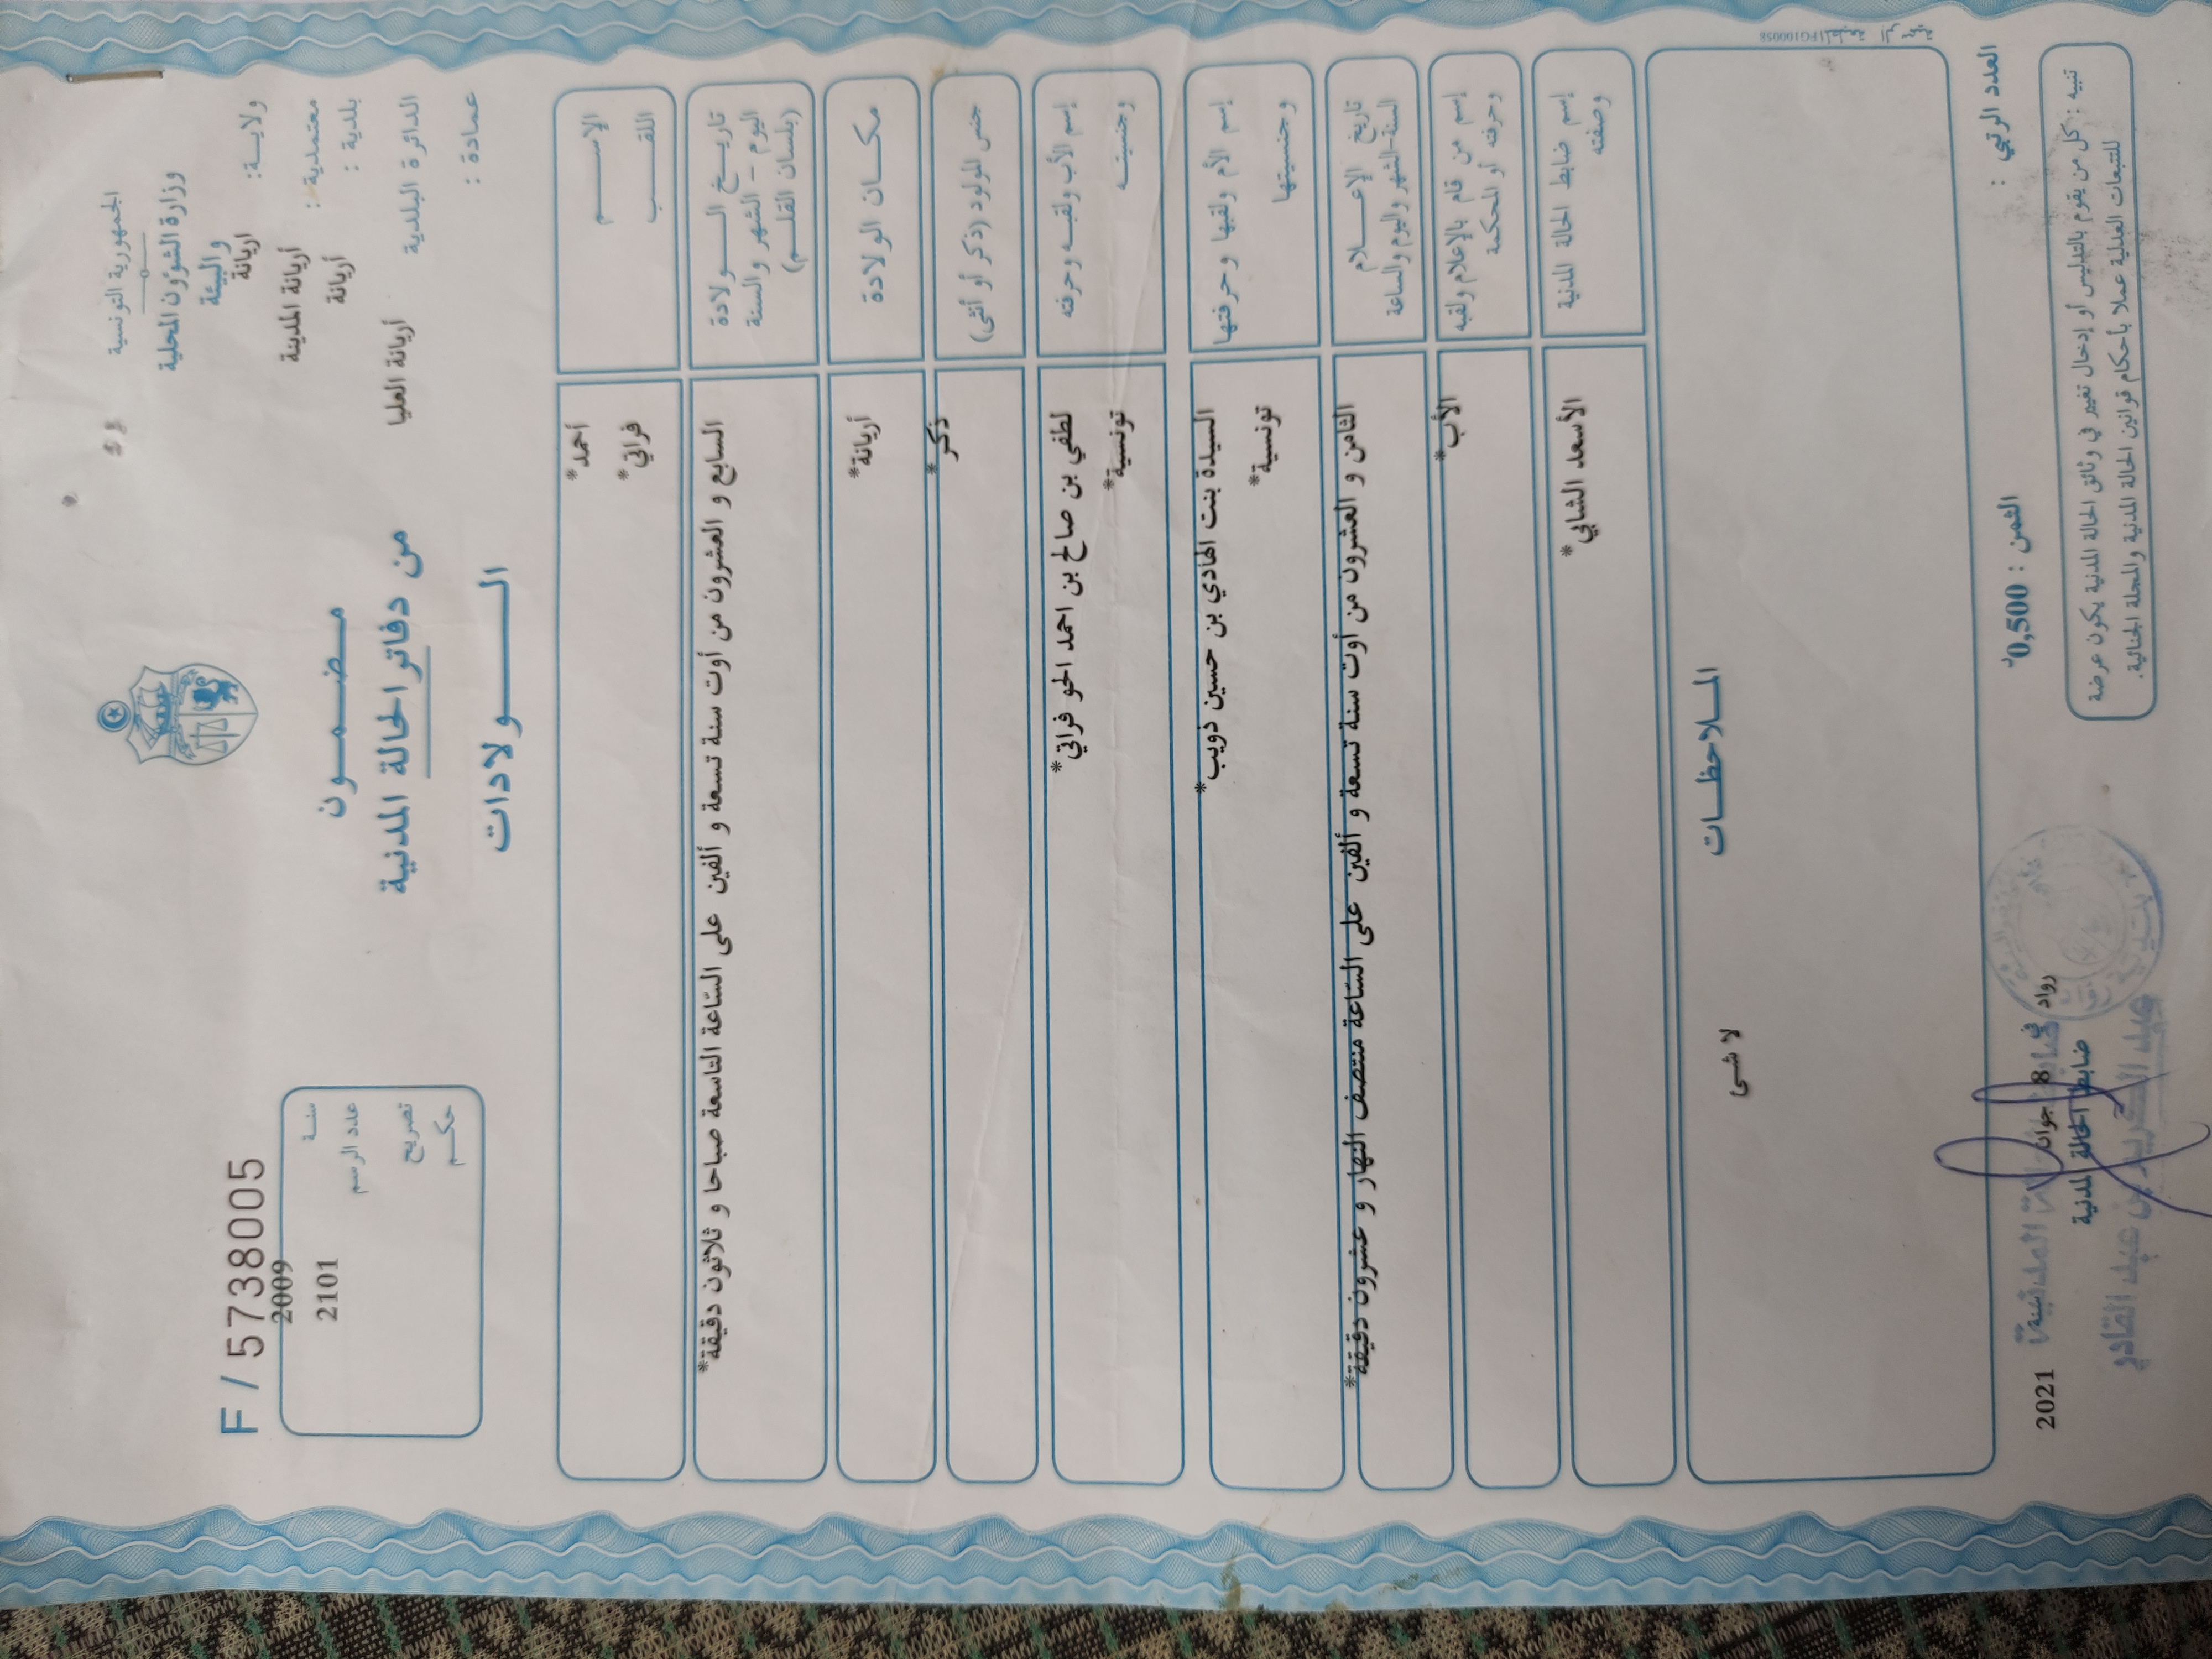 الجمهورية التونسية
وزارة الشؤون المحلية
والبيئة
ولايـــة: اريانة
معتمدية: أريانة المدينة
بلدية : أريانة
الدائرة البلدية أريانة العليا
عمادة :
مـضـمـــون
من دفاتر الحالة المدنية
الـــــولادات
F / 5738005
سنـة 2009
عدد الرسم 2101
تصريح
حكـــم
الإســـــم أحمد*
اللقـــــب فراتي*
تاريـــخ الـــــولادة
اليوم – الشهر والسنة
(بلسان القلـــم)
السابع و العشرون من أوت سنة تسعة و ألفين على الساعة التاسعة صباحا و ثلاثون دقيقة*
مكـــان الولادة أريانة*
جنس المولود (ذكر أو أنثى) ذكر*
إسم الأب ولقبـــه وحرفته لطفي بن صالح بن احمد الحو فراتي*
وجنسيتـــه تونسية*
إسم الأم ولقبها وحرفتها السيدة بنت الهادي بن حسين ذويب*
وجنسيتها تونسية*
تاريخ الإعــــلام
السنة-الشهر واليوم والساعة
الثامن و العشرون من أوت سنة تسعة و ألفين على الساعة منتصف النهار و عشرون دقيقة*
إسم من قام بالإعلام ولقبه
وحرفته أو المحكمة
الأب*
إسم ضابط الحالة المدنية
وصفته
الأسعد الشابي*
المـــلاحظـــات
لا شىء
العدد الرتبي :
الثمن : 0,500د
رواد في 8 جوان سنة 2021
ضابط الحالة المدنية
ضابط الحالة المدنية
عبد الكريم بن عبد القادر
تنبيه : كل من يقوم بالتدليس أو إدخال تغيير في وثائق الحالة المدنية يكون عرضة
للتتبعات العدلية عملا بأحكام قوانين الحالة المدنية والمجلة الجنائية.